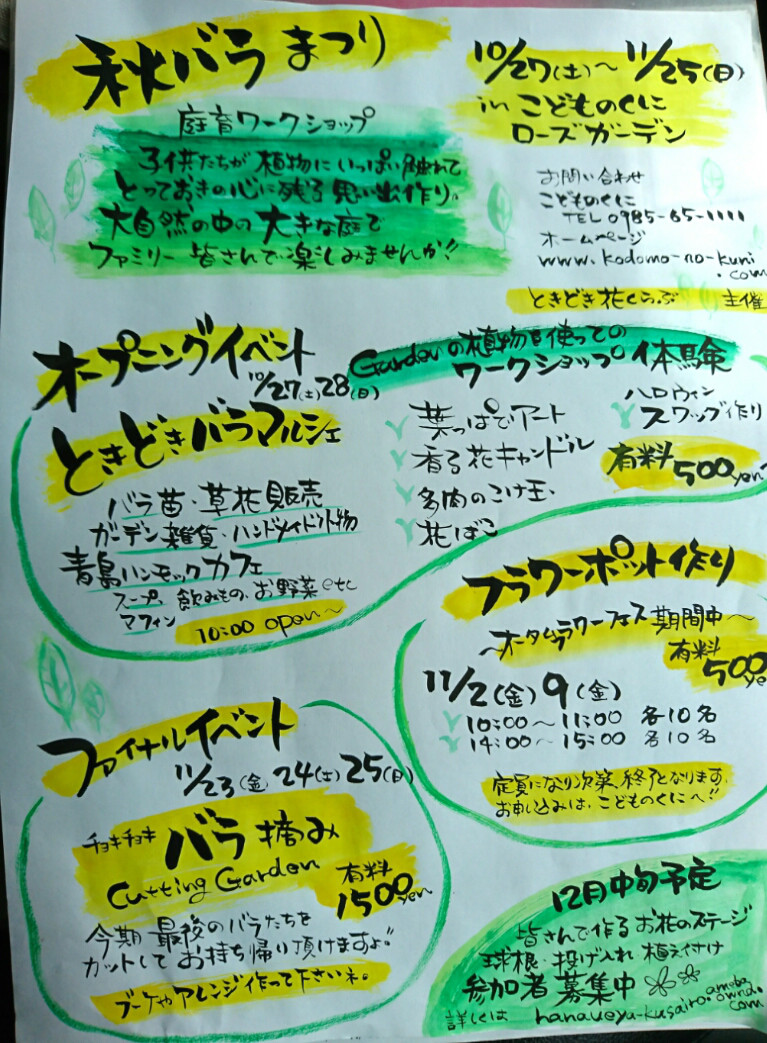 秋バラまつり
10/27(土)～11/25(日)
in こどものくに
ローズガーデン
庭育ワークショップ
子供たちが植物にいっぱい触れて
とっておきの心に残る思い出作り。
大自然の中の大きな庭で
ファミリー皆さんで楽しみませんか!!
お問い合わせ
こどものくに
TEL 0985-65-1111
ホームページ
www.kodomo-no-kuni
.com
ときどき花くらぶ 主催
オープニングイベント
10/27(土)28(日)
ときどきバラマルシェ
バラ苗・草花販売
ガーデン雑貨・ハンドメイド小物
青島ハンモックカフェ
スープ、飲みもの、お野菜etc
マフィン
10:00 open～
Gardenの植物を使っての
ワークショップ体験
葉っぱでアート
香る花キャンドル
多肉のこけ玉、
花ばこ
ハロウィン
スワッグ作り
有料500yen
フラワーポット作り
～オータムフラワーフェス期間中～
有料
500yen
11/2(金)9(金)
10:00～11:00 各10名
14:00～15:00 各10名
定員になり次第、終了となります。
お申し込みは、こどものくにへ!!
ファイナルイベント
11/23(金)24(土)25(日)
チョキチョキ バラ摘み
Cutting Garden
有料
1500yen
今期最後のバラたちを
カットしてお持ち帰り頂けますよ!!
ブーケやアレンジ作って下さいネ。
12月中旬予定
皆さんで作るお花のステージ
球根・投げ入れ 植え付け
参加者募集中
詳しくは hanaueyu-kusairo.amebaownd.com